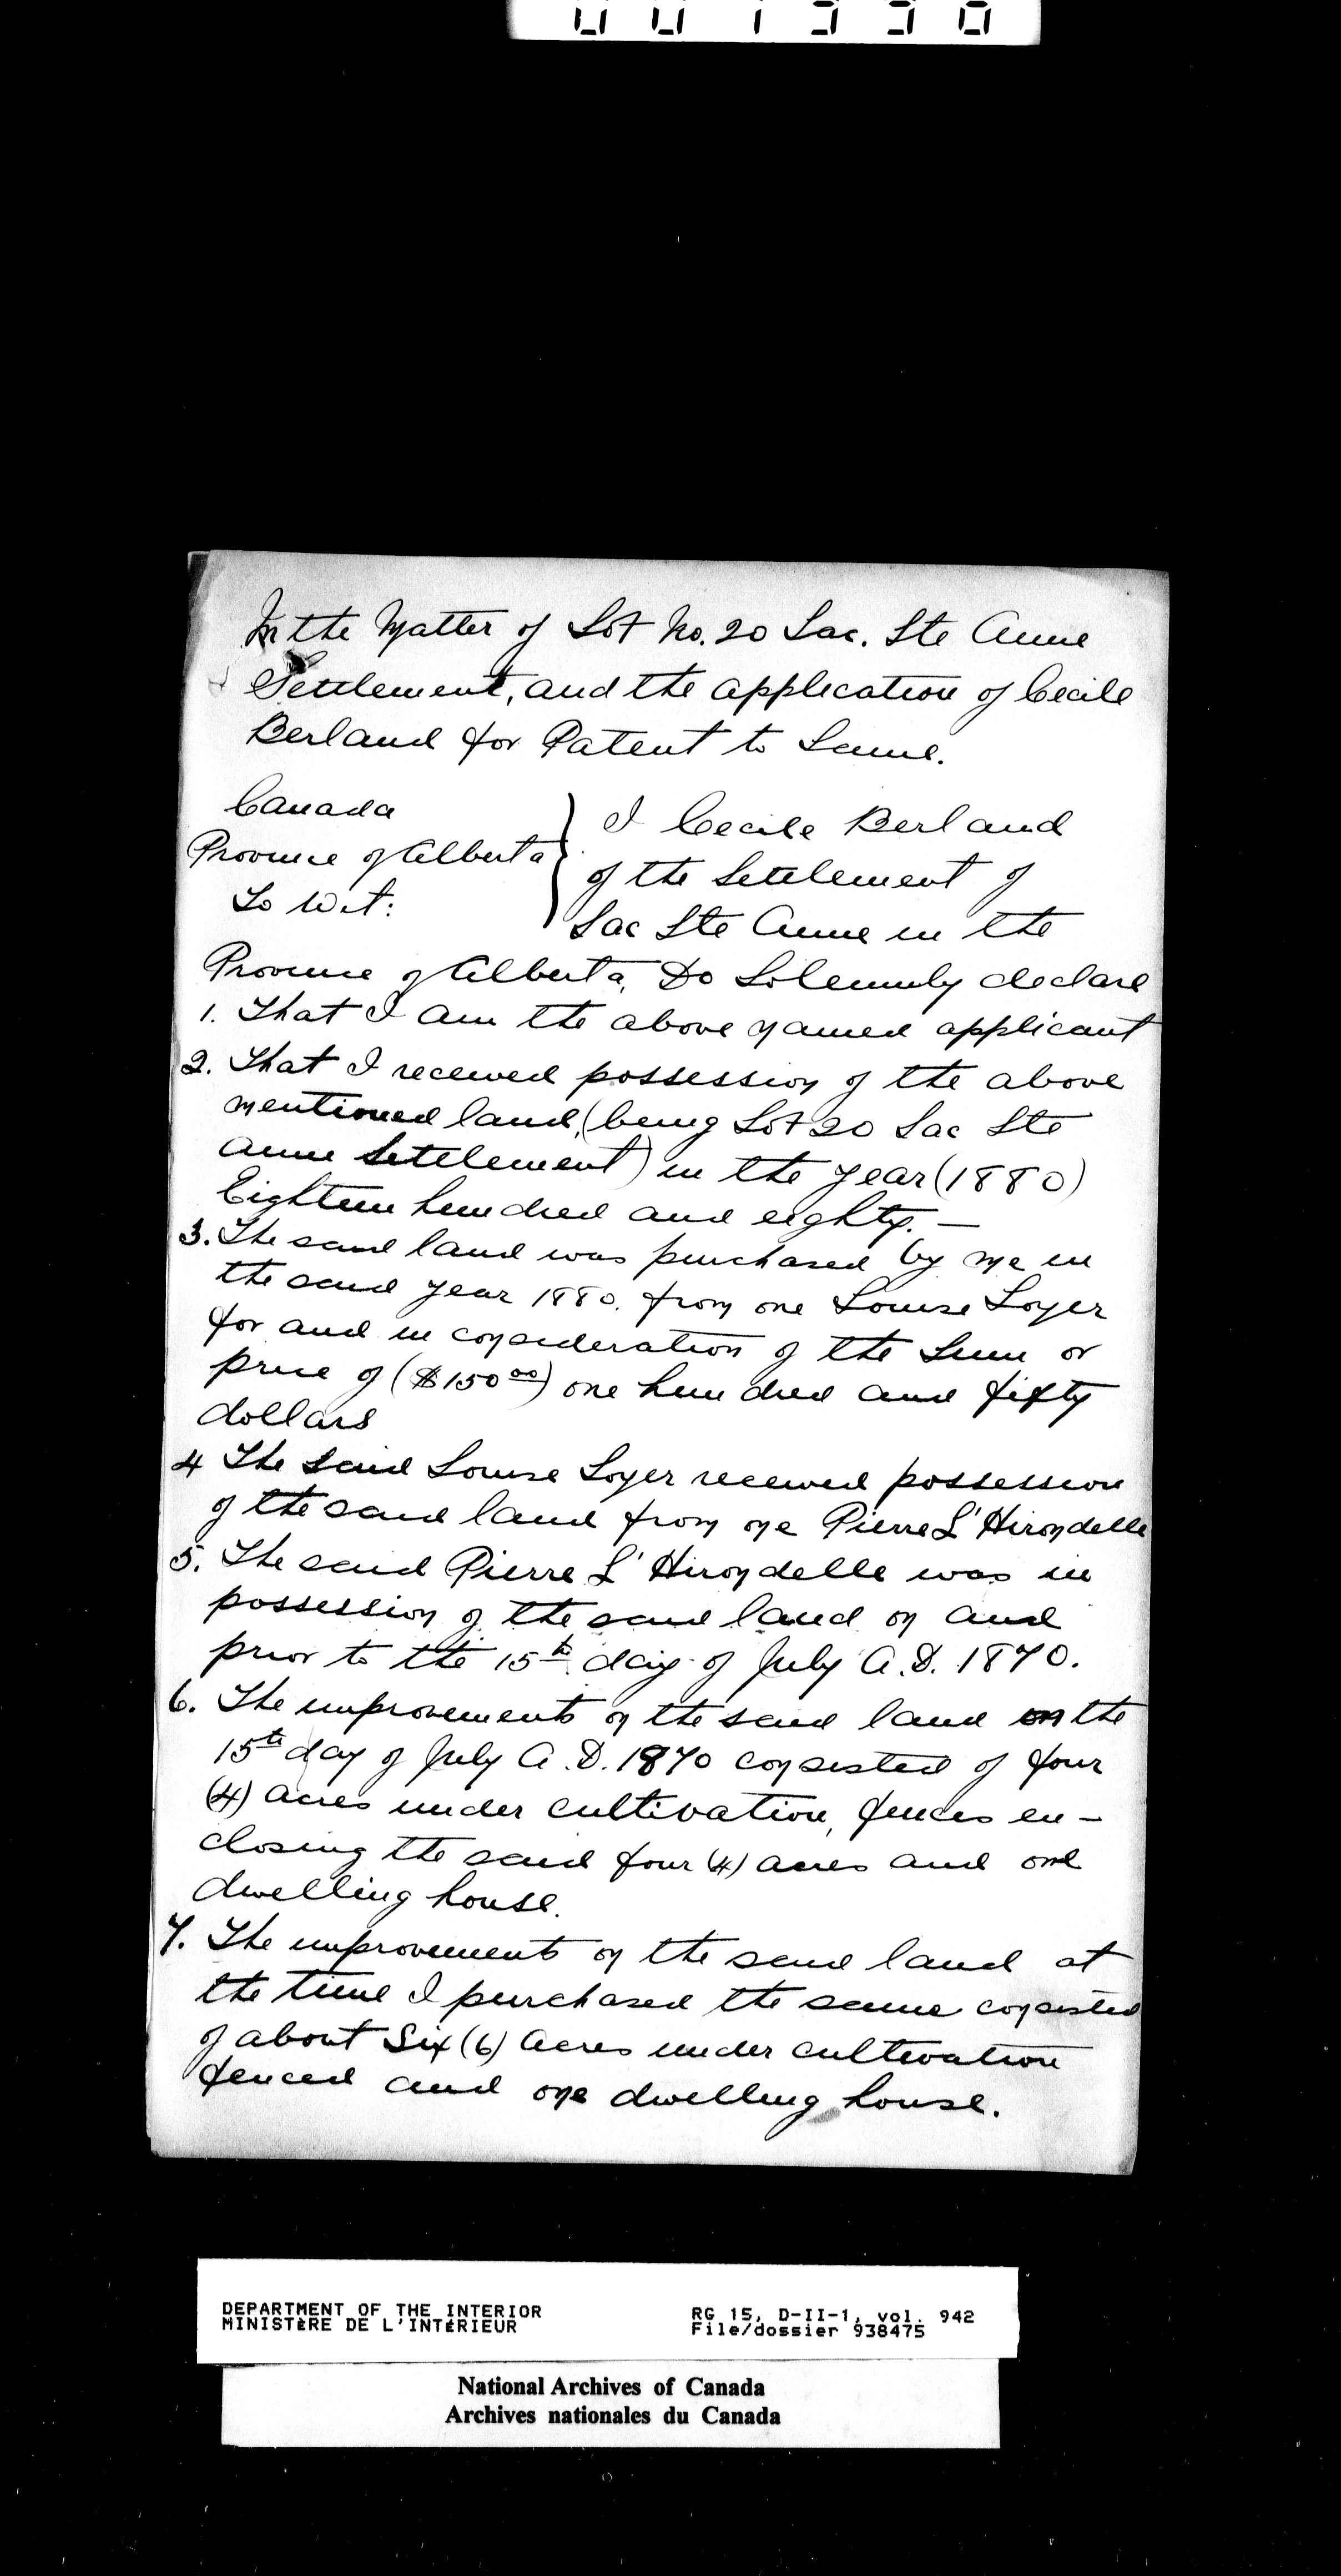 In the Matter of Lot No. 20 Lac. Ste Anne
Settlement, and the application of Cecile
Berland for Patent to Same.
Canada
Province of Alberta
To Wit:
I Cecile Berland
of the Settlement of
Lac Ste Anne in the
Province of Alberta, Do Solemnly declare
1. That I am the above named applicant
2. That I received possession of the above
mentioned land, (being Lot 20 Lac Ste
Anne Settlement) in the year (1880)
Eighteen hundred and eighty. —
3. The said land was purchased by me in
the said year 1880. from one Louise Loyer
for and in consideration of the Sum or
price of ($150 00) one hundred and fifty
dollars
4 The Said Louise Loyer received possession
of the said land from one Pierre L'Hirondelle
5. The said Pierre L'Hirondelle was in
possession of the said land on and
prior to the 15th day of July A.D. 1870.
6. The improvements on the said land on the
15th day of July A.D. 1870 consisted of four
(4) acres under cultivation, fences en-
closing the said four (4) acres and one
dwelling house.
7. The improvements on the said land at
the time I purchased the same consisted
of about Six (6) acres under cultivation
fenced and one dwelling house.
DEPARTMENT OF THE INTERIOR
MINISTÈRE DE L'INTÉRIEUR
RG 15, D-II-1, vol. 942
File/dossier 938475
National Archives of Canada
Archives nationales du Canada